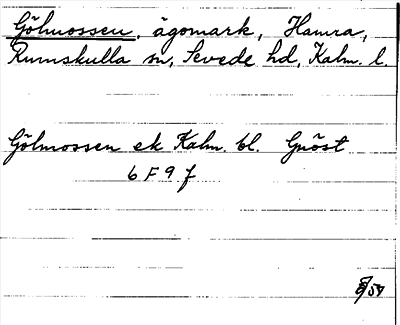 Gölmossen, ägomark, Hamra,
Rumskulla sn, Sevede hd, Kalm. l.
Gölmossen ek Kalm. bl. Gnöst
6 F 9 f